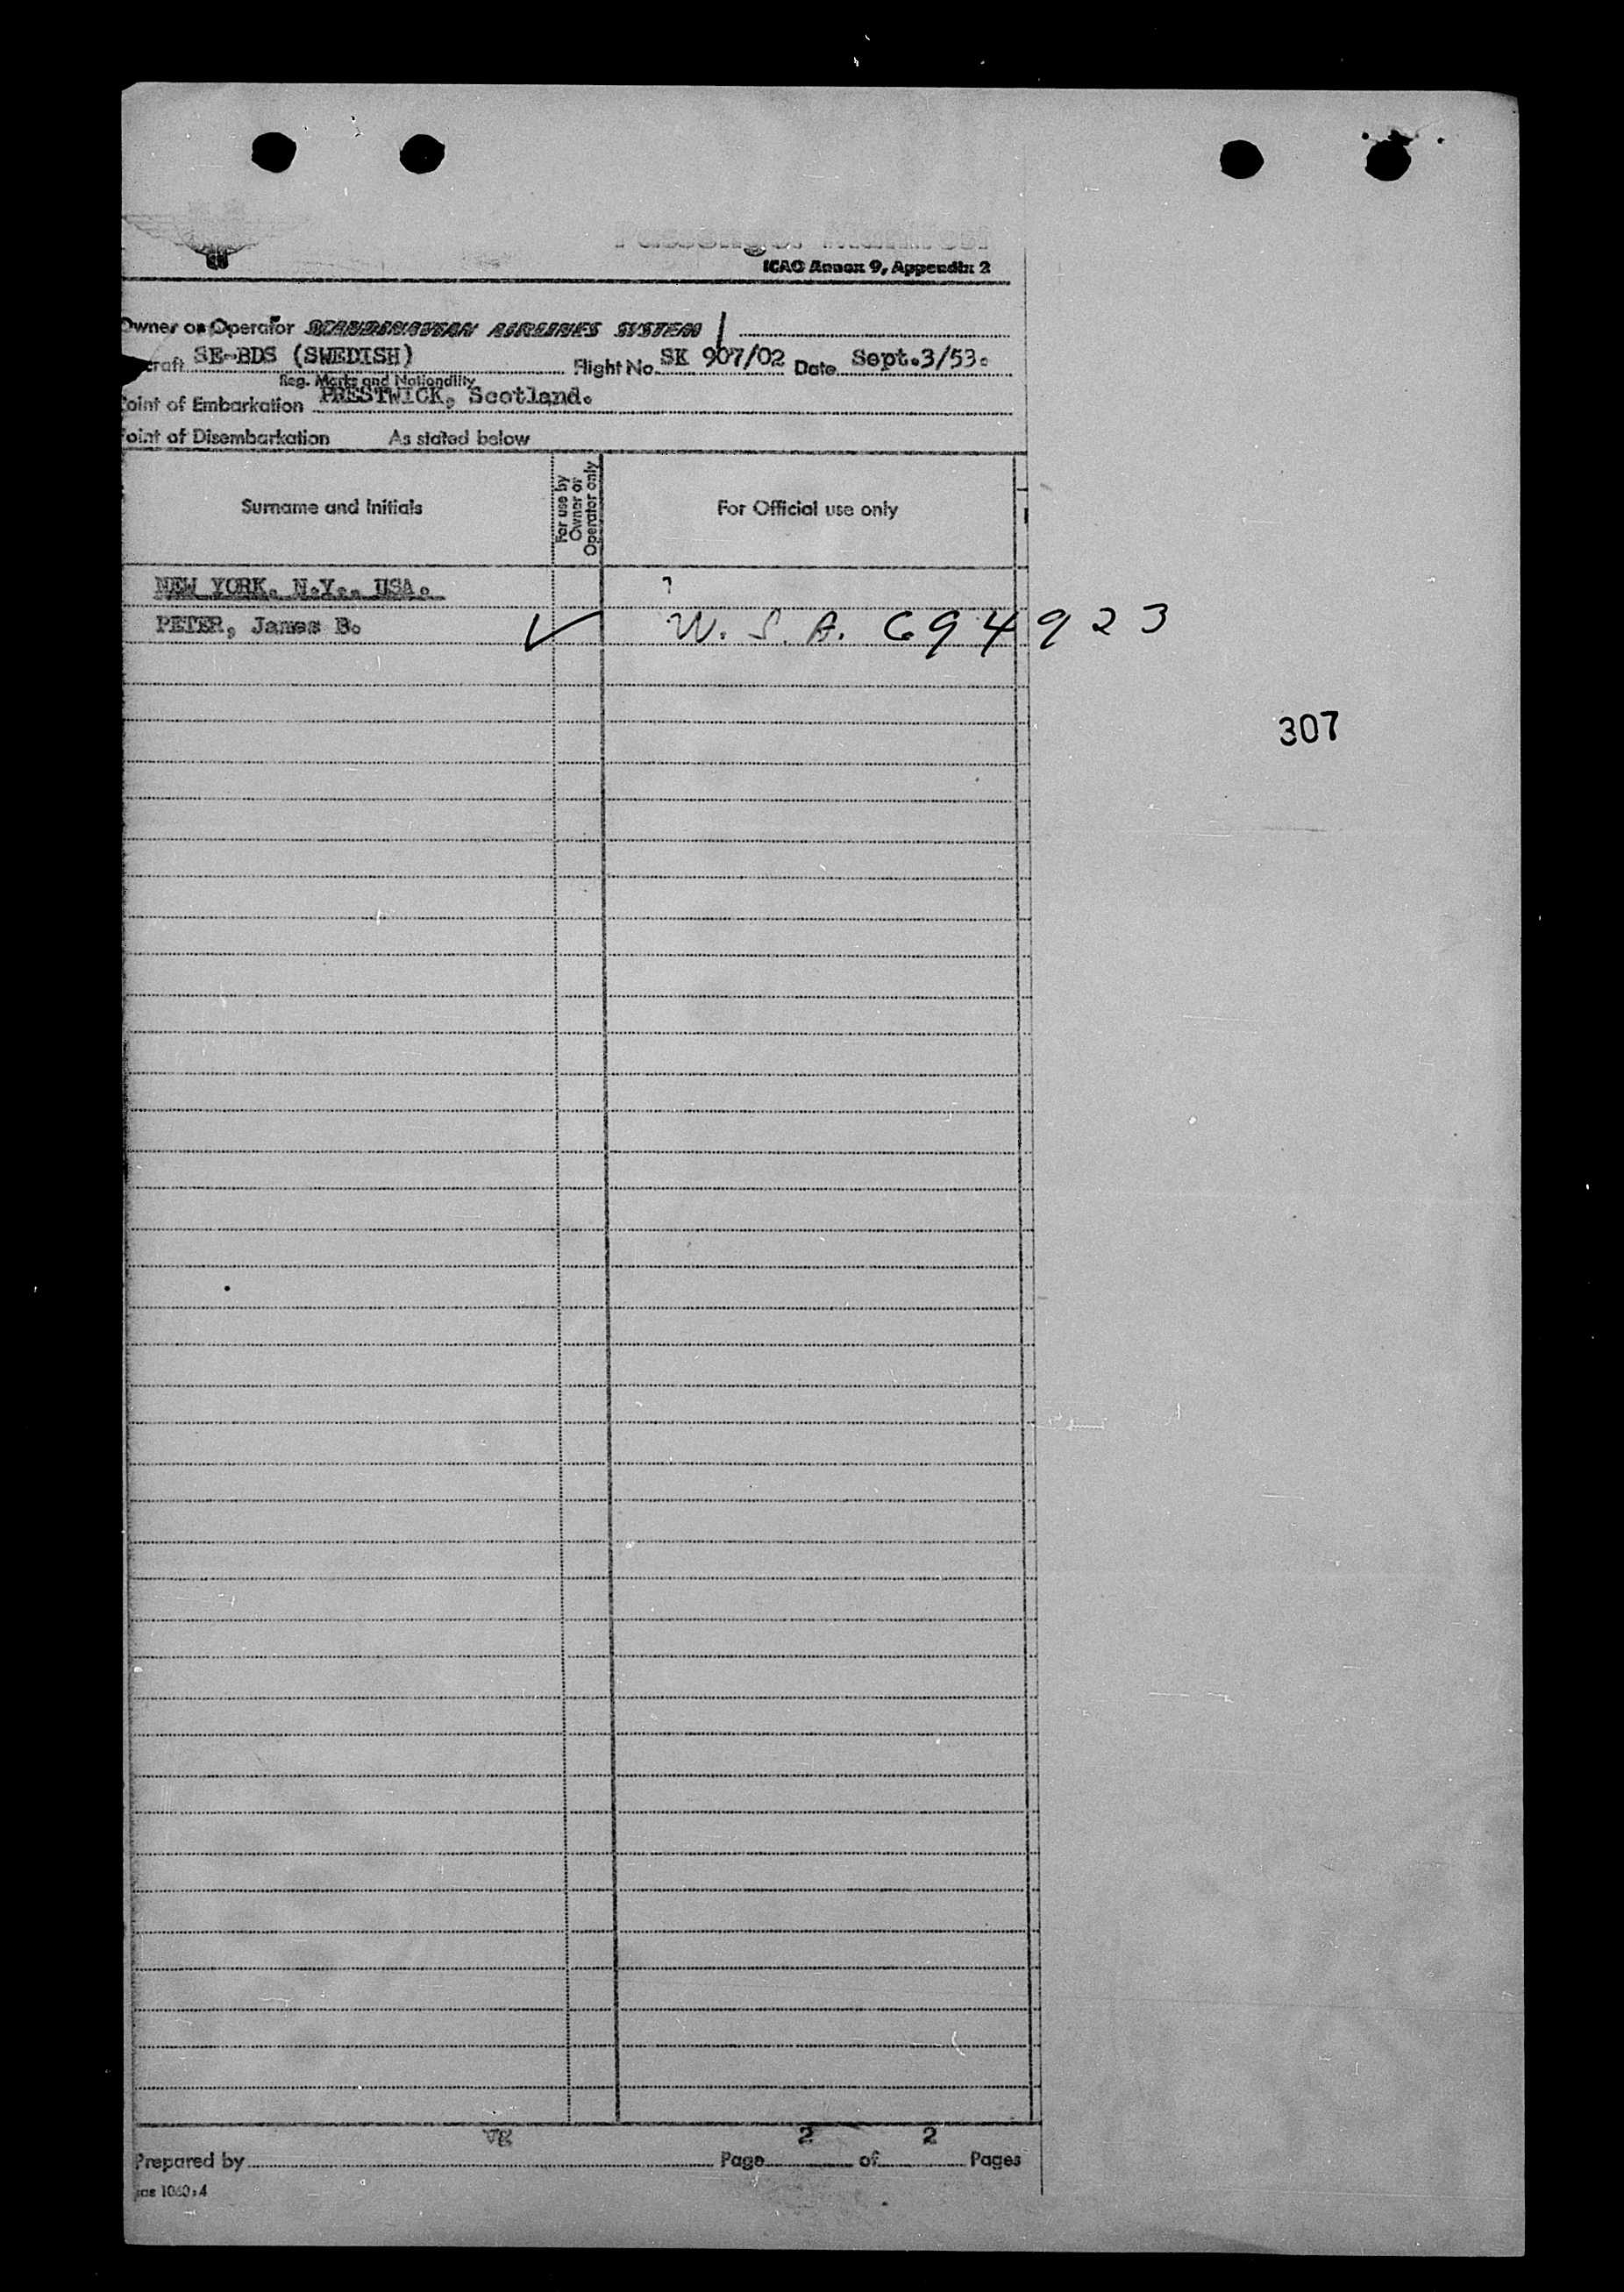 Passenger Manifest
ICAO Annex 9, Appendix 2
Owner or Operator SCANDINAVIAN AIRLINES SYSTEM
craft SE-BDS (SWEDISH) Flight No. SK 907/02 Date Sept.3/53.
Reg. Marks and Nationality
Point of Embarkation PRESTWICK, Scotland.
Point of Disembarkation As stated below
Surname and Initials For use by Owner or Operator only For Official use only
NEW YORK. N.Y.. USA.
PETER, James B. ✓ U.S.A. 694923
307
vg
Prepared by Page 2 of 2 Pages
sas 1060:4